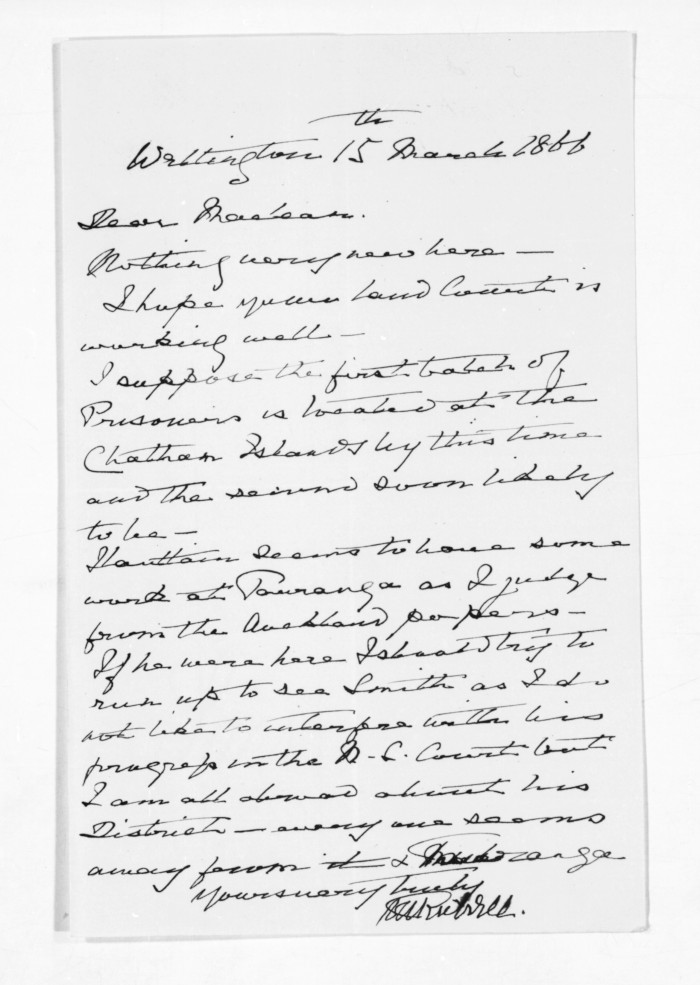 th
Wellington 15 March 1866
Dear Maclean.
Nothing very new here —
I hope your land Court is
working well —
I suppose the first batch of
Prisoners is located at the
Chatham Islands by this time
and the second soon likely
to be —
Haultain seems to have some
work at Tauranga as I judge
from the Auckland papers —
If he were here I should try to
run up to see Smith as I do
not like to interfere with his
progress in the N. L. Court but
I am all abroad about his
District — every one seems
away from it & Tauranga
Yours very truly